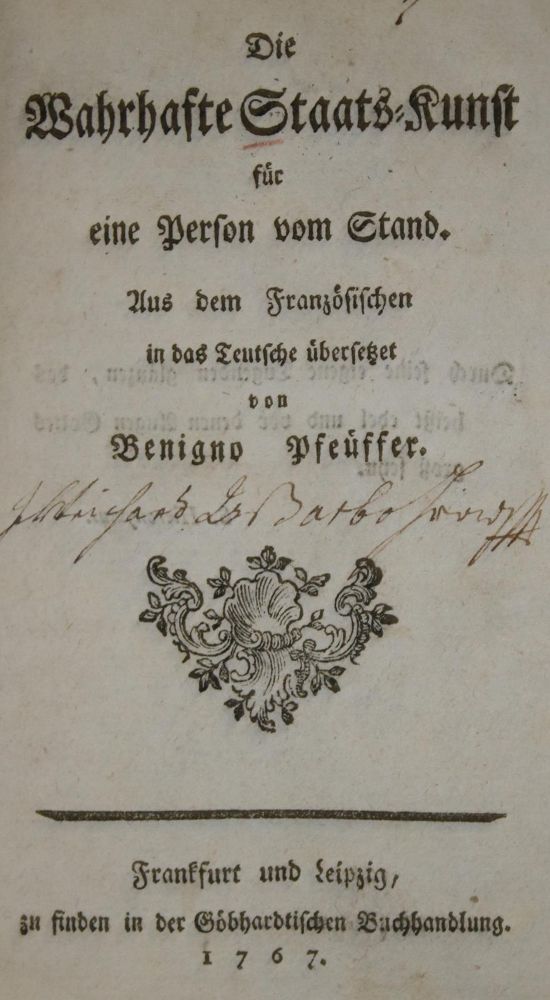 Die
Wahrhafte Staats-Kunst
für
eine Person vom Stand.
Aus dem Französischen
in das Teutsche übersetzet
von
Benigno Pfeüffer.
Frankfurt und Leipzig,
zu finden in der Göbhardtischen Buchhandlung.
1767.